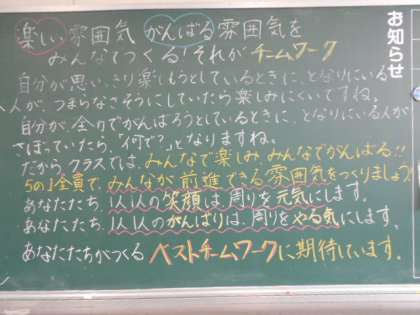 お知らせ
楽しい雰囲気 がんばる雰囲気を
みんなでつくる！それがチームワーク
自分が思いっきり楽しもうとしているときに、となりにいる
人が、つまらなさそうにしていたら楽しみにくいですね。
自分が、全力でがんばろうとしているときに、となりにいる人が
さぼっていたら、「何で？」となりますね。
だからクラスでは、みんなで楽しみ、みんなでがんばる!!
5の1全員で、みんなが前進できる雰囲気をつくりましょう！
あなたたち、1人1人の笑顔は周りを元気にします。
あなたたち、1人1人のがんばりは、周りをやる気にします。
あなたたちがつくるベストチームワークに期待しています。